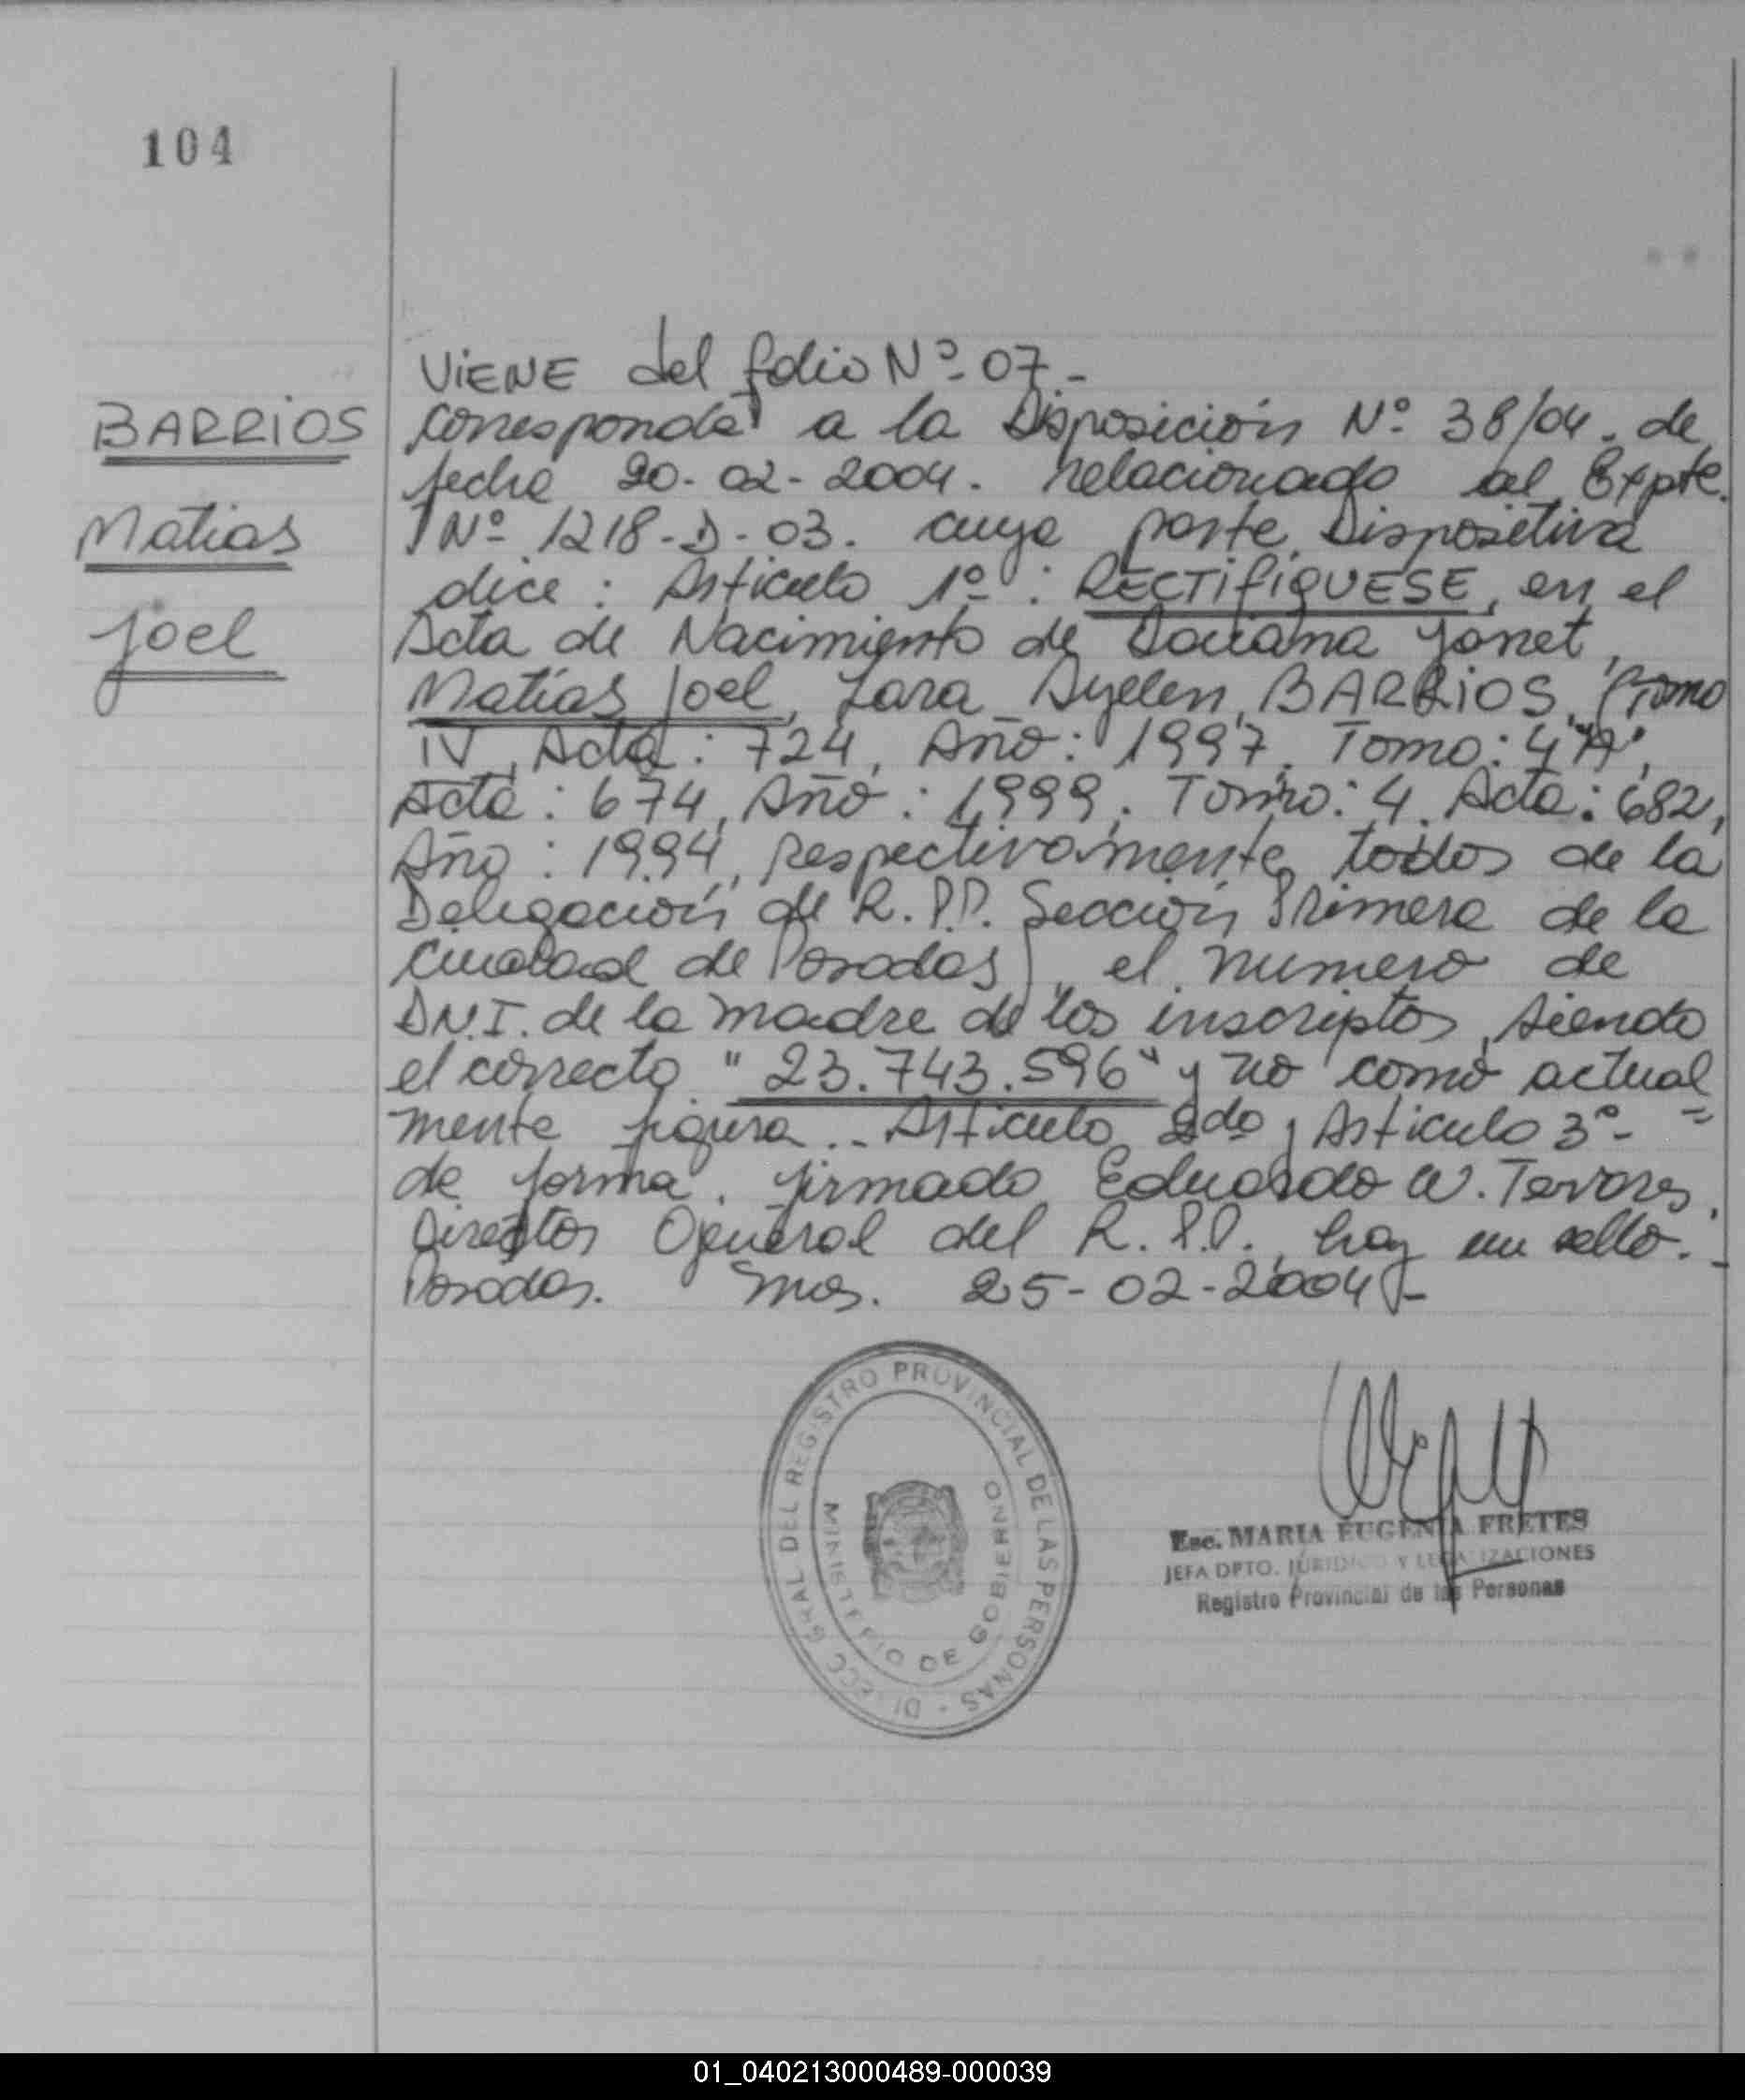 104
BARRIOS
Matias
Joel
ViENE del folio Nº 07.-
Corresponde a la Disposición Nº 38/04. de
fecha 20-02-2004. relacionado al Expte.
Nº 1218-D-03. cuya parte Dispositiva
dice: Artículo 1º: RECTIFIQUESE, en el
Acta de Nacimiento de Daiana Yanet,
Matías Joel, Lara Ayelen BARRIOS, (Tomo
IV, Acta: 724, Año: 1997, Tomo: 4
Acta: 674, Año: 1999. Tomo: 4. Acta: 682,
Año: 1994, respectivamente, todos de la
Delegación de R.P.P. Sección Primera de la
Ciudad de Posadas), el numero de
D.N.I. de la madre de los inscriptos, siendo
el correcto "23.743.596" y no como actual
mente figura.- Artículo 2do y Artículo 3º-
de forma. firmado Eduardo W. Tavares
Director General del R.P.P., hay un sello.-
Posadas. Mnes. 25-02-2004.-
DIRECC GRAL DEL REGISTRO PROVINCIAL DE LAS PERSONAS -
MINISTERIO DE GOBIERNO
Esc. MARIA EUGENIA FRETES
JEFA DPTO. JURIDICO Y LEGALIZACIONES
Registro Provincial de las Personas
01_040213000489-000039